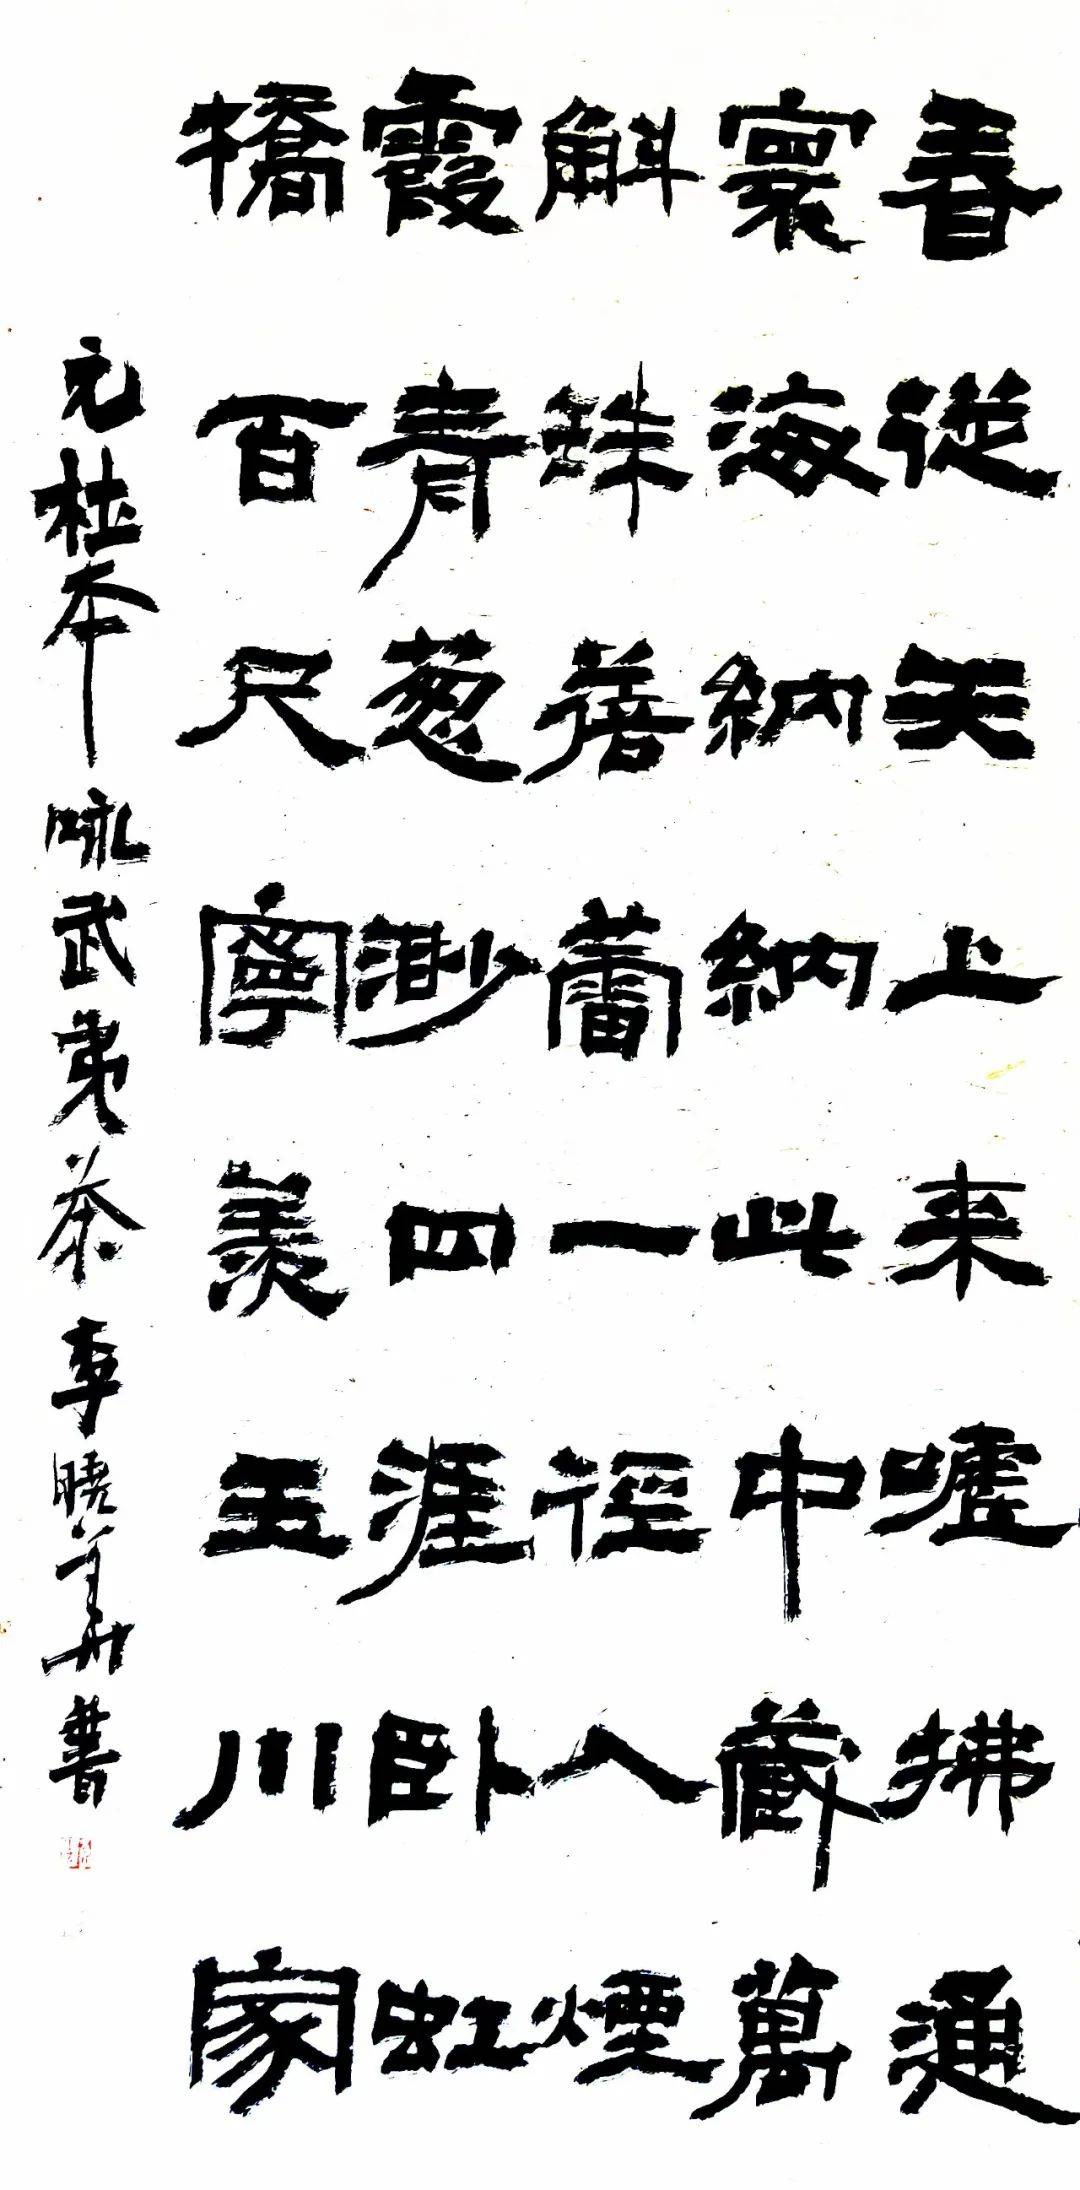 春從天上来嘘拂通
寰海納納此中藏萬
斛珠蓓蕾一徑入煙
霞青葱渺四涯卧虹
橋百尺寧羨玉川家
元杜本咏武夷茶李曉書